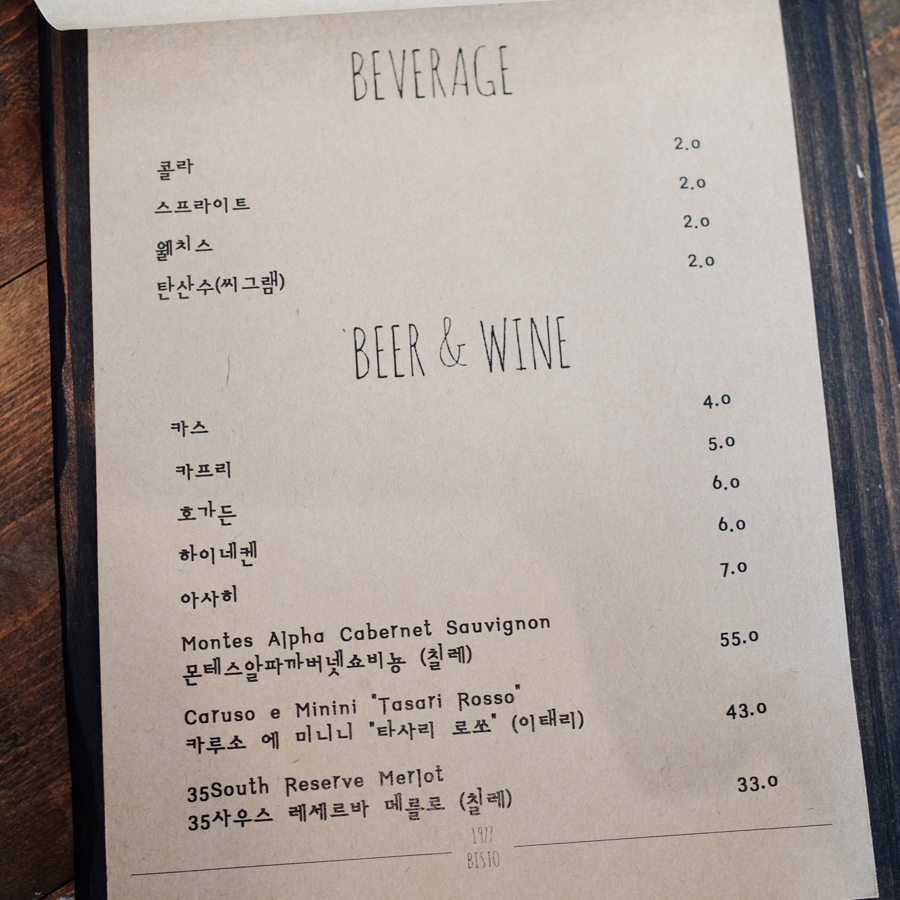 BEVERAGE
콜라 2.0
스프라이트 2.0
웰치스 2.0
탄산수(씨그램) 2.0
BEER & WINE
카스 4.0
카프리 5.0
호가든 6.0
하이네켄 6.0
아사히 7.0
Montes Alpha Cabernet Sauvignon
몬테스알파까버넷쇼비뇽 (칠레) 55.0
Caruso e Minini "Tasari Rosso"
카루소 에 미니니 "타사리 로쏘" (이태리) 43.0
35South Reserve Merlot
35사우스 레세르바 메를로 (칠레) 33.0
1977
BISTO